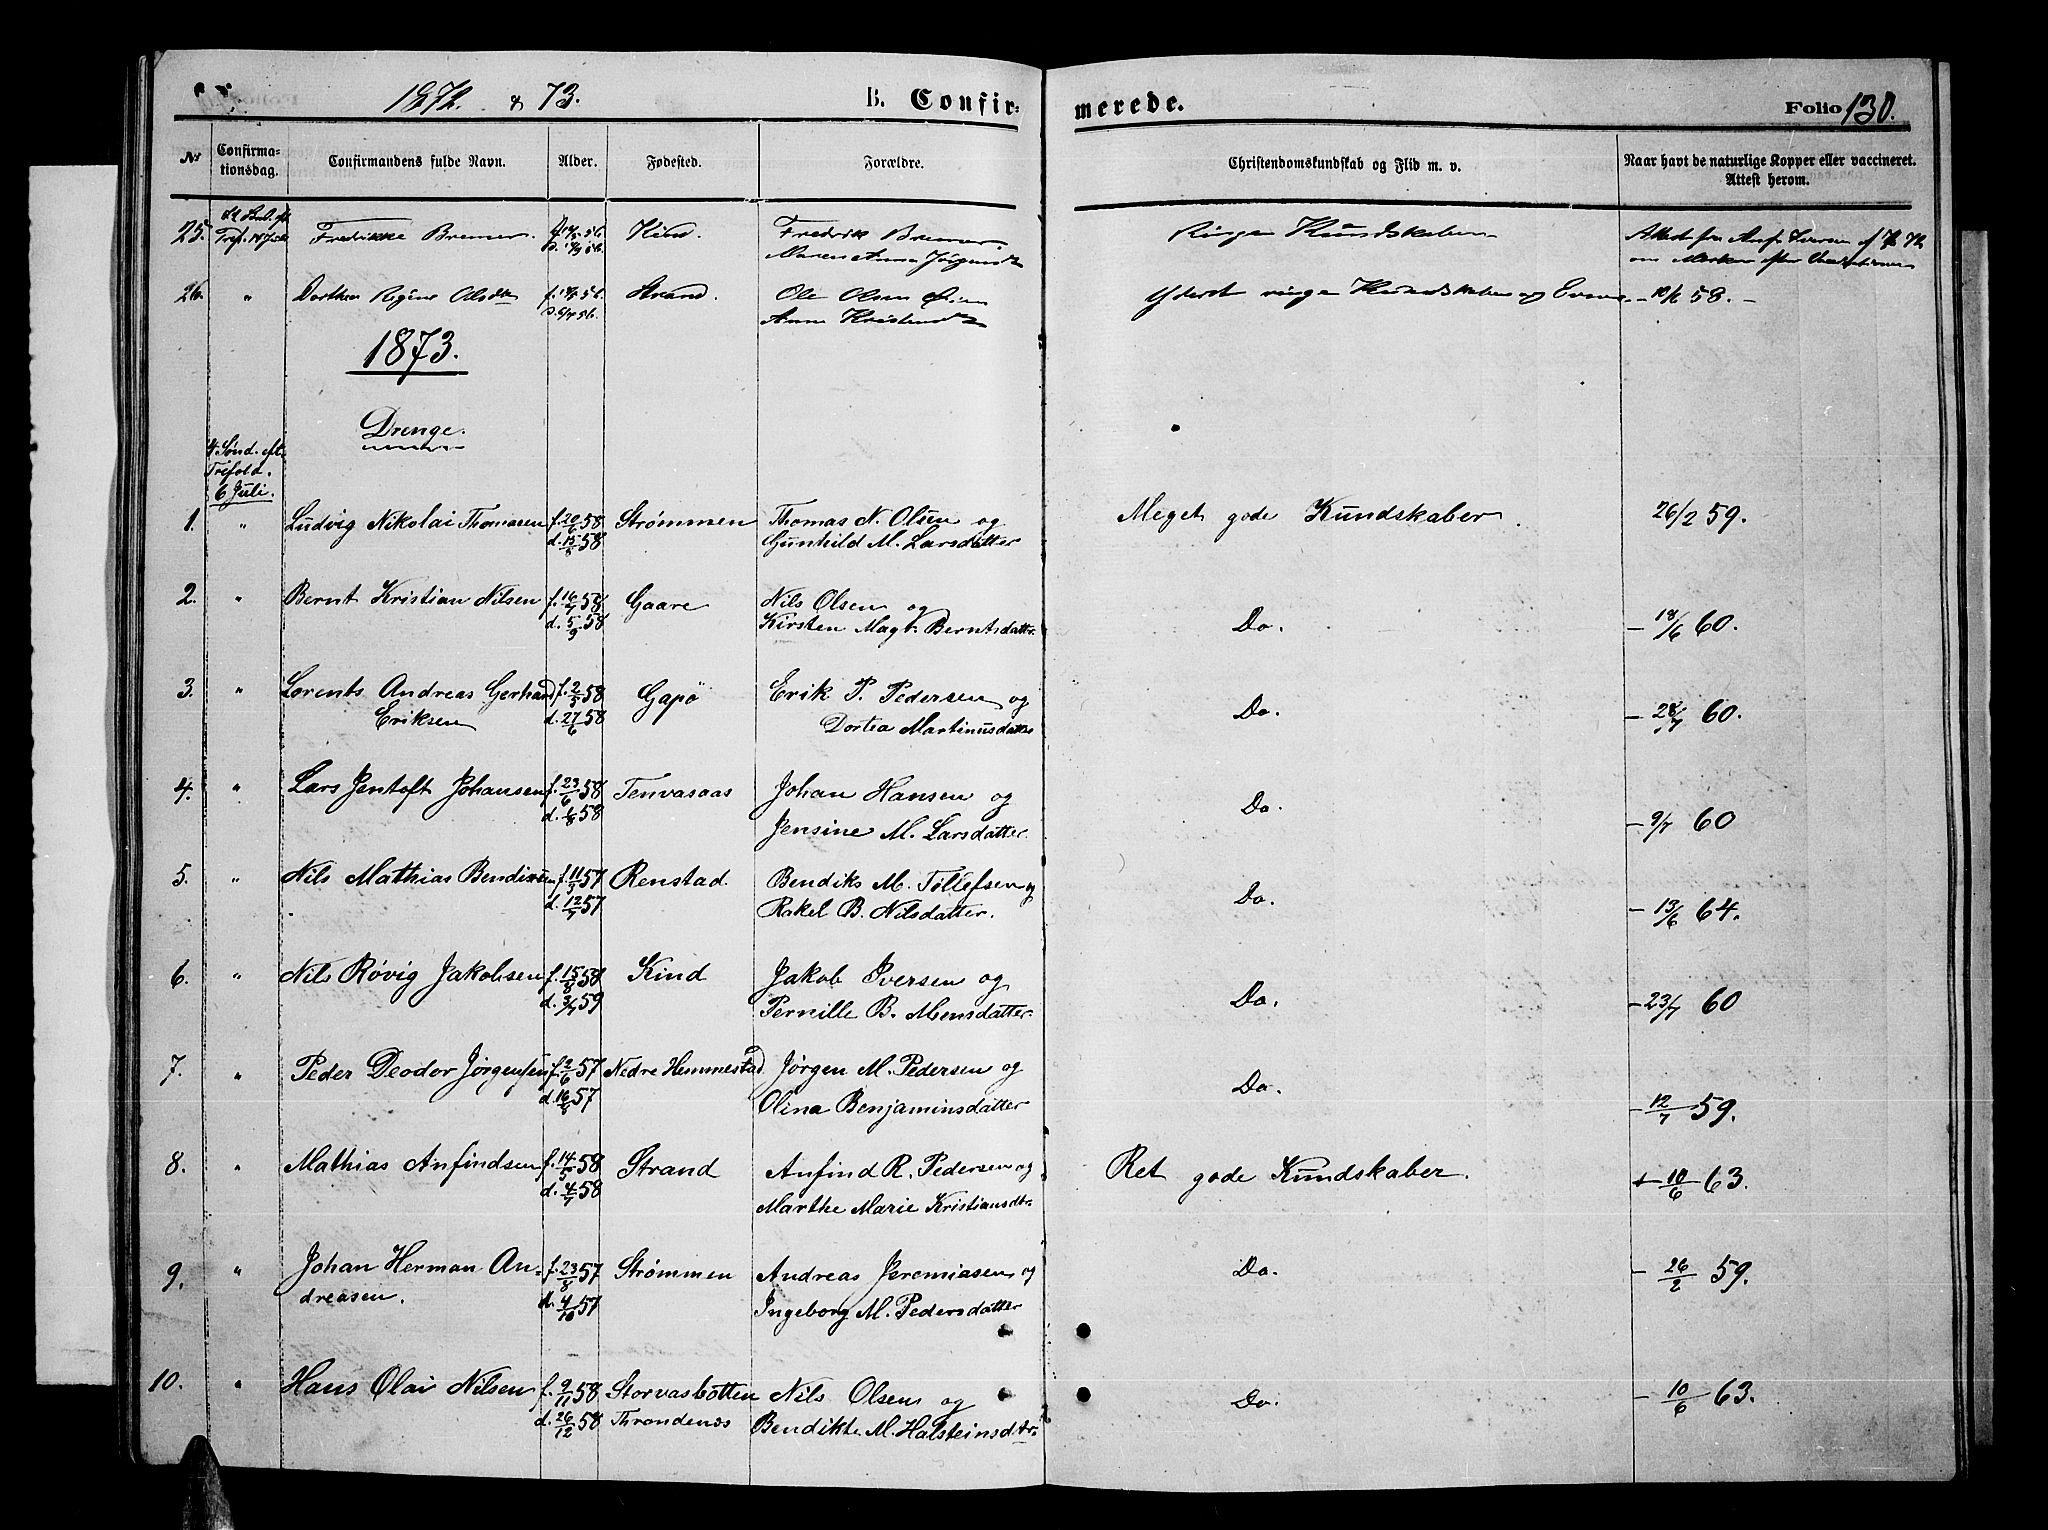 1872 & 73. B. Confirmerede. Folio 130.
No Confirmationsdag. Confirmandens fulde Navn. Alder. Fødested. Forældre. Christendomskundskab og Flid m. v. Naar havt de naturlige Kopper eller vaccineret. Attest herom.
25. Fredrikke Bremer. Kind. Fredrik Bremer Ringe Kundskaber
Maren Anna
26. " Dorthea Regine Olsdtr Strand. Ole Olsen Yderst ringe Kundskaber og Evner - 10/6 58. -
Anne
1873.
Drenge.
4. Sønd. eft.
Trefold.
6 Juli.
1. " Ludvig Nikolai Thomasen f. 20/6 58 Strømmen Thomas N. Olsen og Meget gode Kundskaber. 26/2 59.
d. 15/8 58 Gunhild M. Larsdatter
2. " Bernt Kristian Nilsen f. 16/7 58 Gaare Nils Olsen og Do. - 18/6 60.
d. 5/9 58 Kirsten Magt. Berntsdatter
3. " Lorents Andreas Gerhard f. 2/5 58 Gapö Erik P. Pedersen og Do. - 28/7 60.
Eriksen d. 27/6 58 Dortea Martinusdatter
4. " Lars Jentoft Johansen f. 23/6 58 Tenvasaas Johan Hansen og Do. - 9/7 60
d. 1/8 58 Jensine M. Larsdatter.
5. " Nils Mathias Bendixen f. 11/5 57 Renstad. Bendiks M. Tollefsen og Do. - 13/6 64.
d. 12/7 57 Rakel B. Nilsdatter.
6. " Nils Rövig Jakobsen f. 15/8 58 Kind Jakob Iversen og Do. - 23/7 60
d. 3/7 59 Pernille B. Monsdatter.
7. " Peder Deodor Jørgensen f. 2/6 57 Nedre Hemmestad Jørgen M. Pedersen og Do. - 12/7 59.
d. 16/8 57 Olina Benjaminsdatter
8. " Mathias Anfindsen f. 14/5 58 Strand Anfind R. Pedersen og Ret gode Kundskaber. - 10/6 63.
d. 4/7 58 Marthe Marie Kristiansdtr.
9. " Johan Herman An- f. 23/8 57 Strømmen Andreas Jeremiasen og Do. - 26/2 59.
dreasen. d. 4/10 57 Ingeborg M. Pedersdatter
10. " Hans Olai Nilsen f. 9/11 58 Storvasbotten Nils Olsen og Do. - 10/6 63.
d. 26/12 58 Throndenes Bendikte M. Halsteinsdtr.